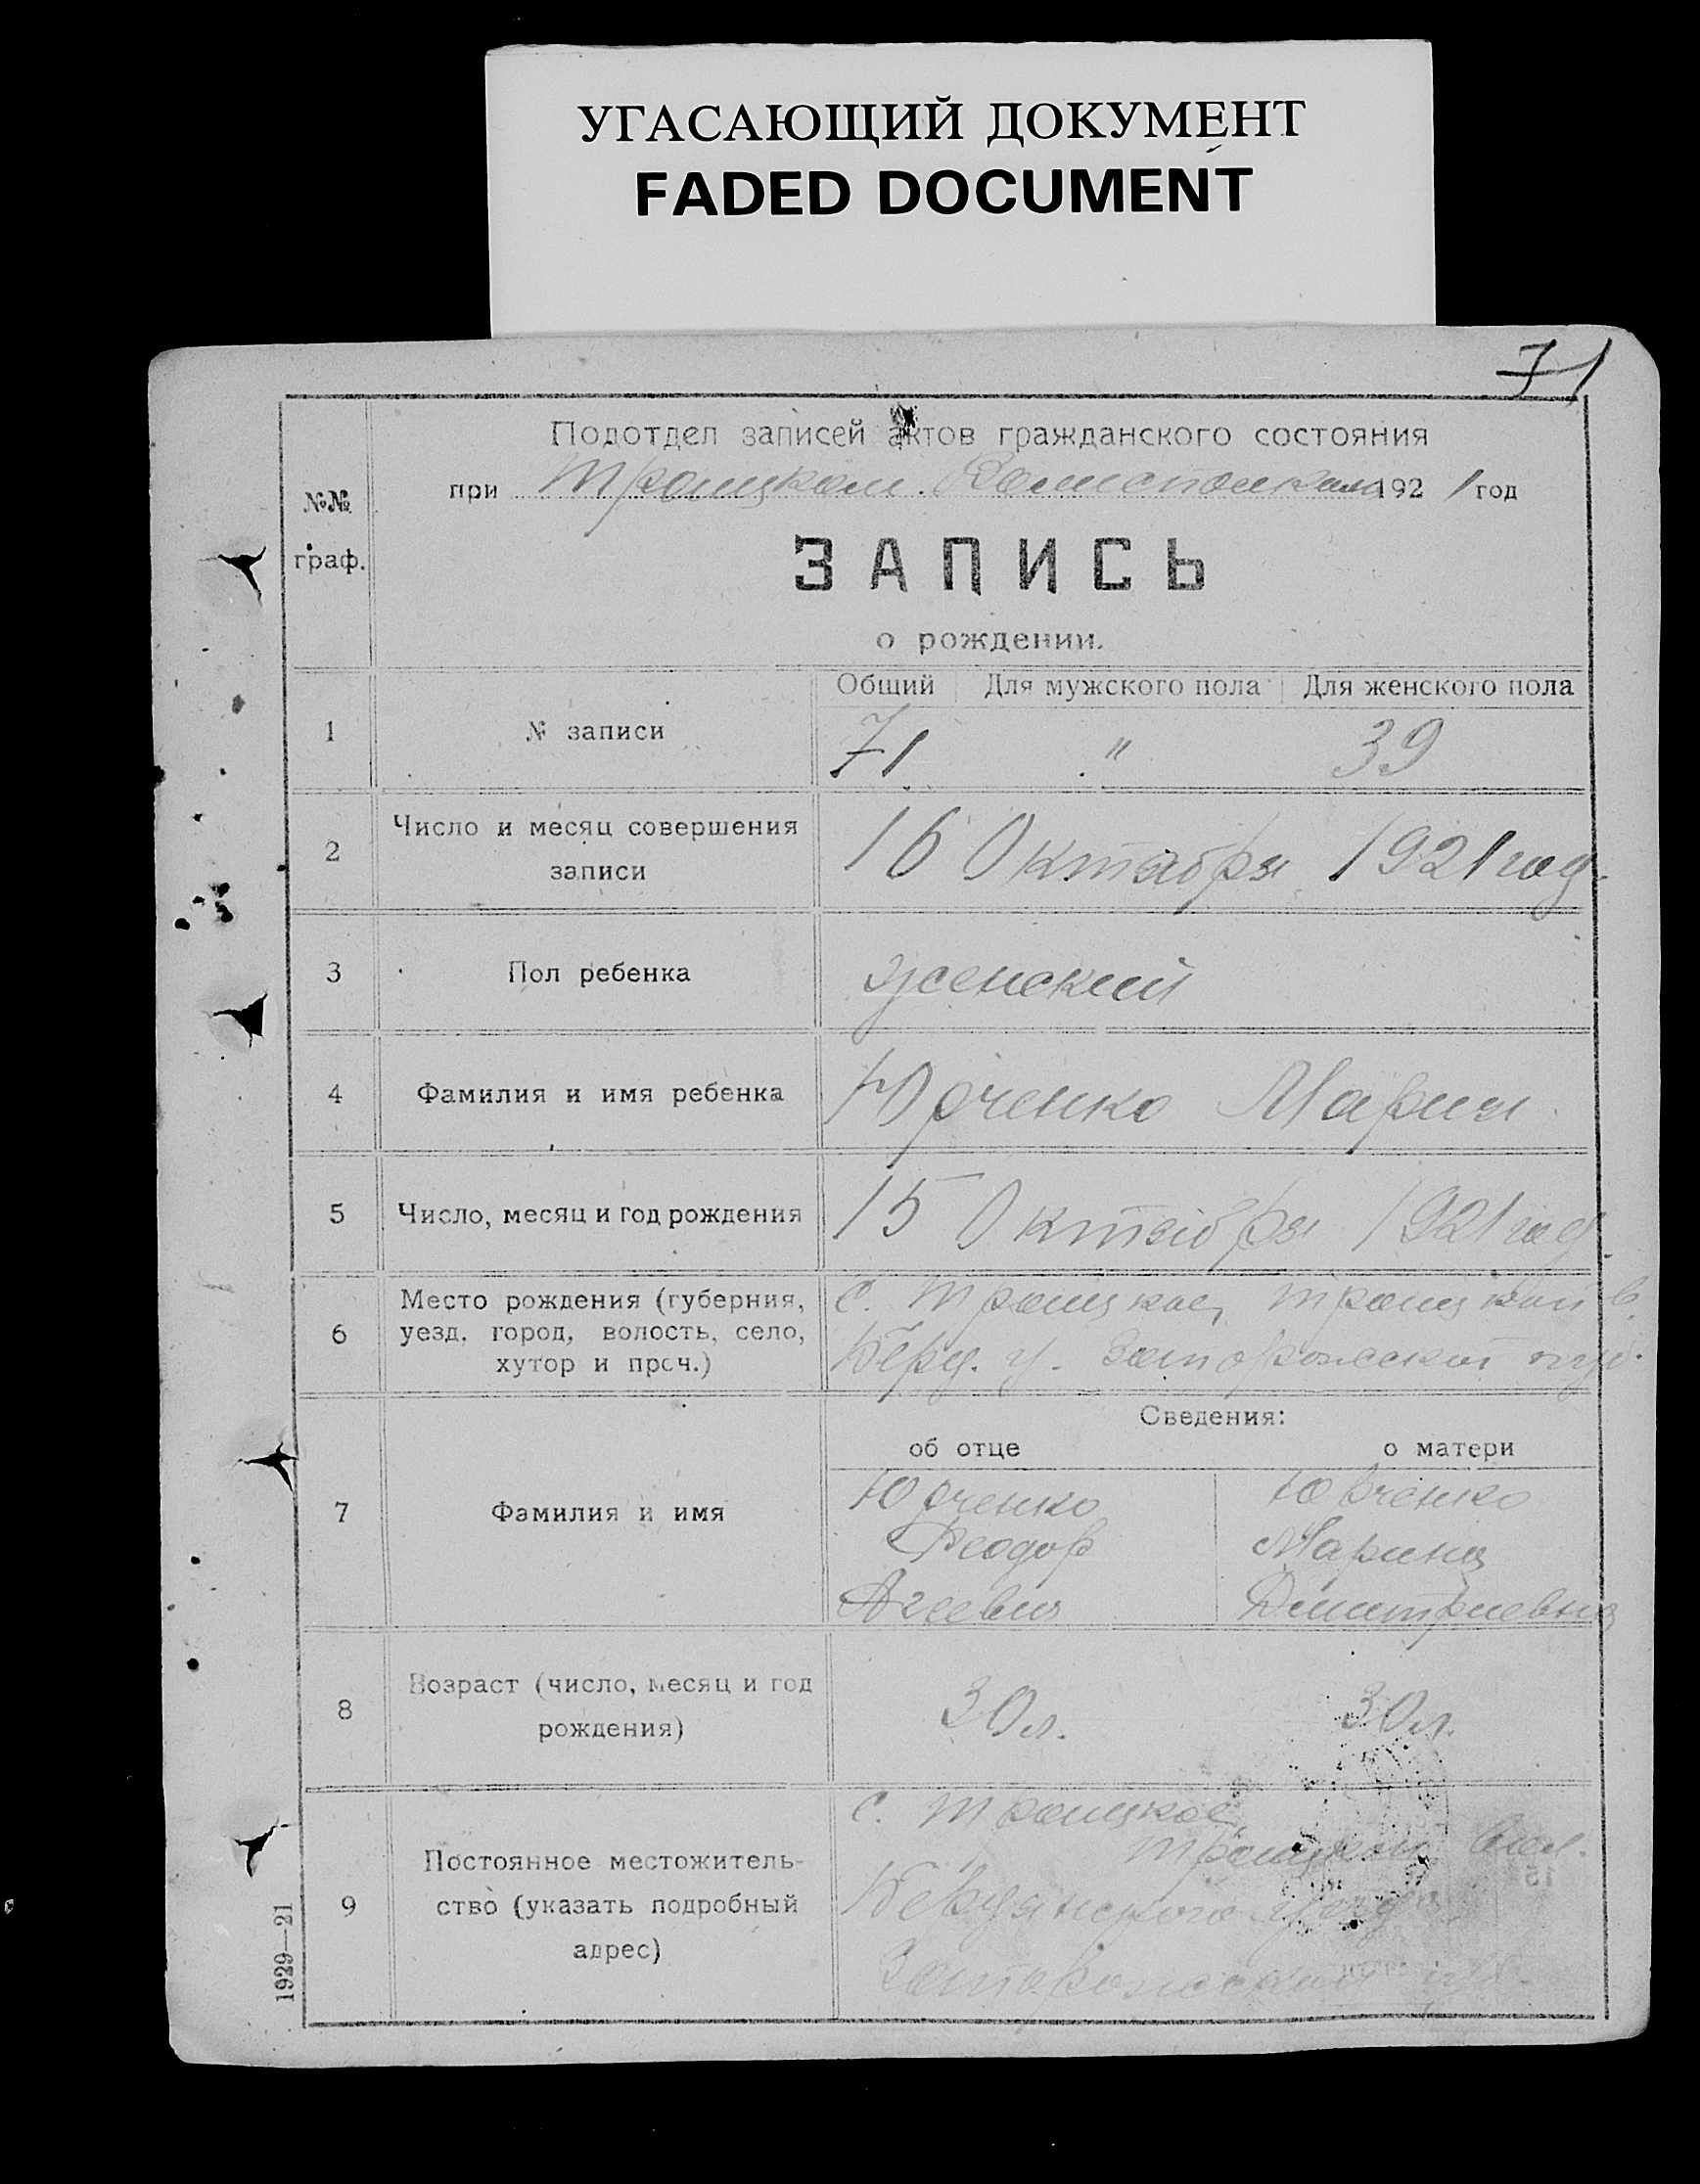 УГАСАЮЩИЙ ДОКУМЕНТ
FADED DOCUMENT
71
Подотдел записей актов гражданского состояния
при Троицком 1921 год
№№ граф.
ЗАПИСЬ
о рождении.
Общий Для мужского пола Для женского пола
1 № записи 71 " 39
2 Число и месяц совершения
записи
16 Октября 1921 год.
3 Пол ребенка женский
4 Фамилия и имя ребенка Юрченко Мария
5 Число, месяц и год рождения 15 Октября 1921 год.
6 Место рождения (губерния,
уезд, город, волость, село,
хутор и проч.)
с. Троицкое, Троицкой в.
Берд. у. Запорожской губ.
Сведения:
об отце о матери
7 Фамилия и имя
Юрченко Юрченко
Феодор Марина
Дмитриевна
8 Возраст (число, месяц и год
рождения)
30 л. 30 л.
9 Постоянное местожитель-
ство (указать подробный
адрес)
с. Троицкое,
Троицкой вол.
Бердянского уезда
Запорожской губ.
1929—21